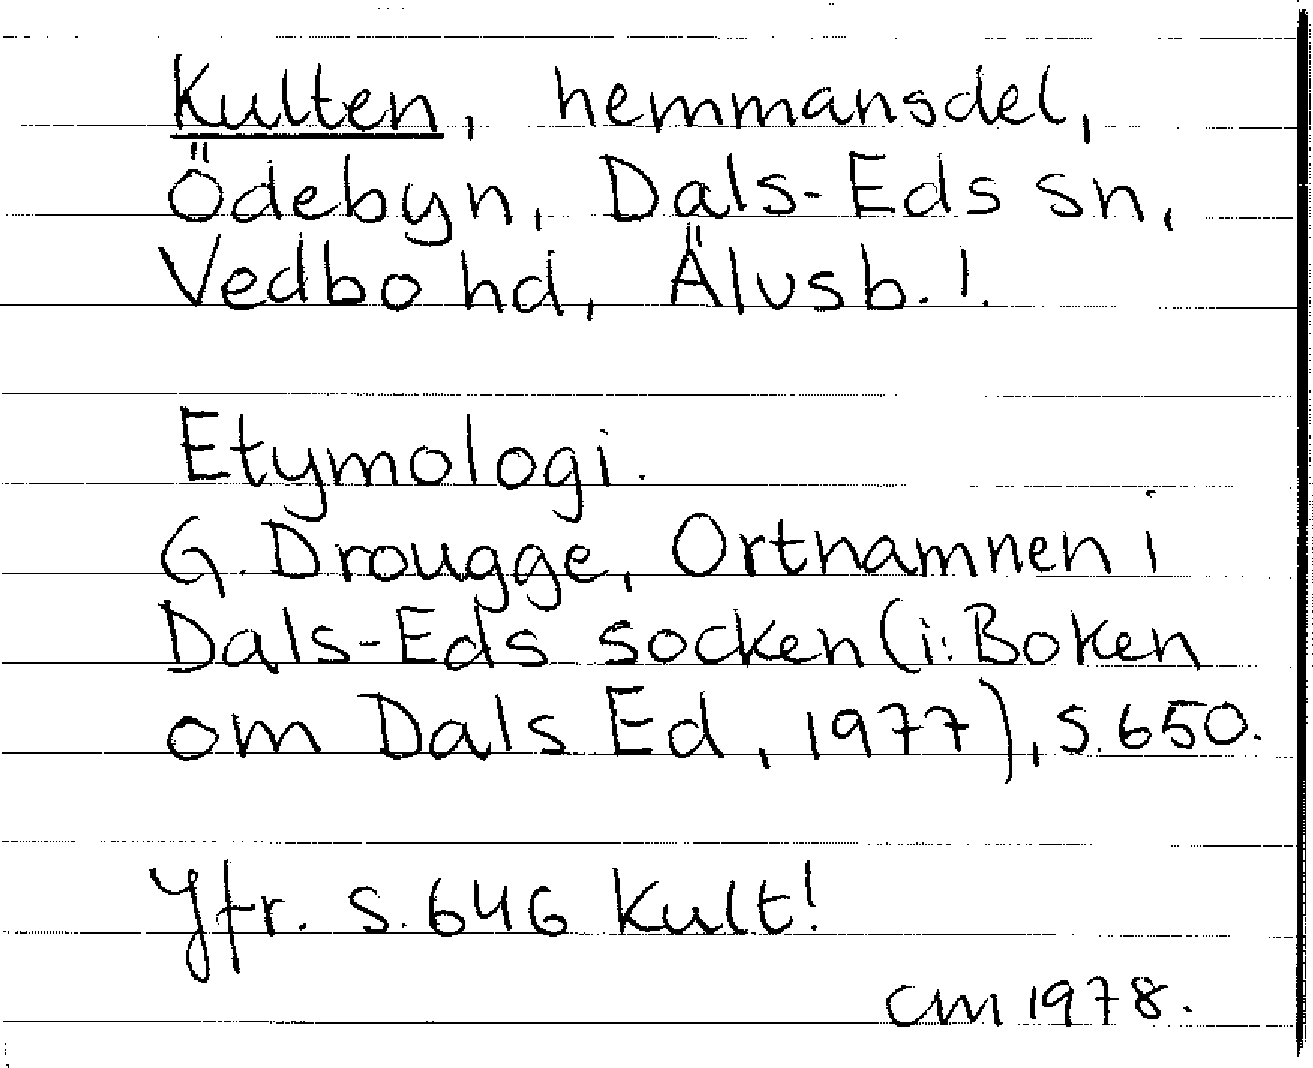 Kulten, hemmansdel,
Ödebyn, Dals-Eds sn,
Vedbo hd, Älvsb. l.
Etymologi.
G. Drougge, Ortnamnen i
Dals-Eds socken (i: Boken
om Dals Ed, 1977), s. 650.
Jfr. s. 646 Kult!
CM 1978.